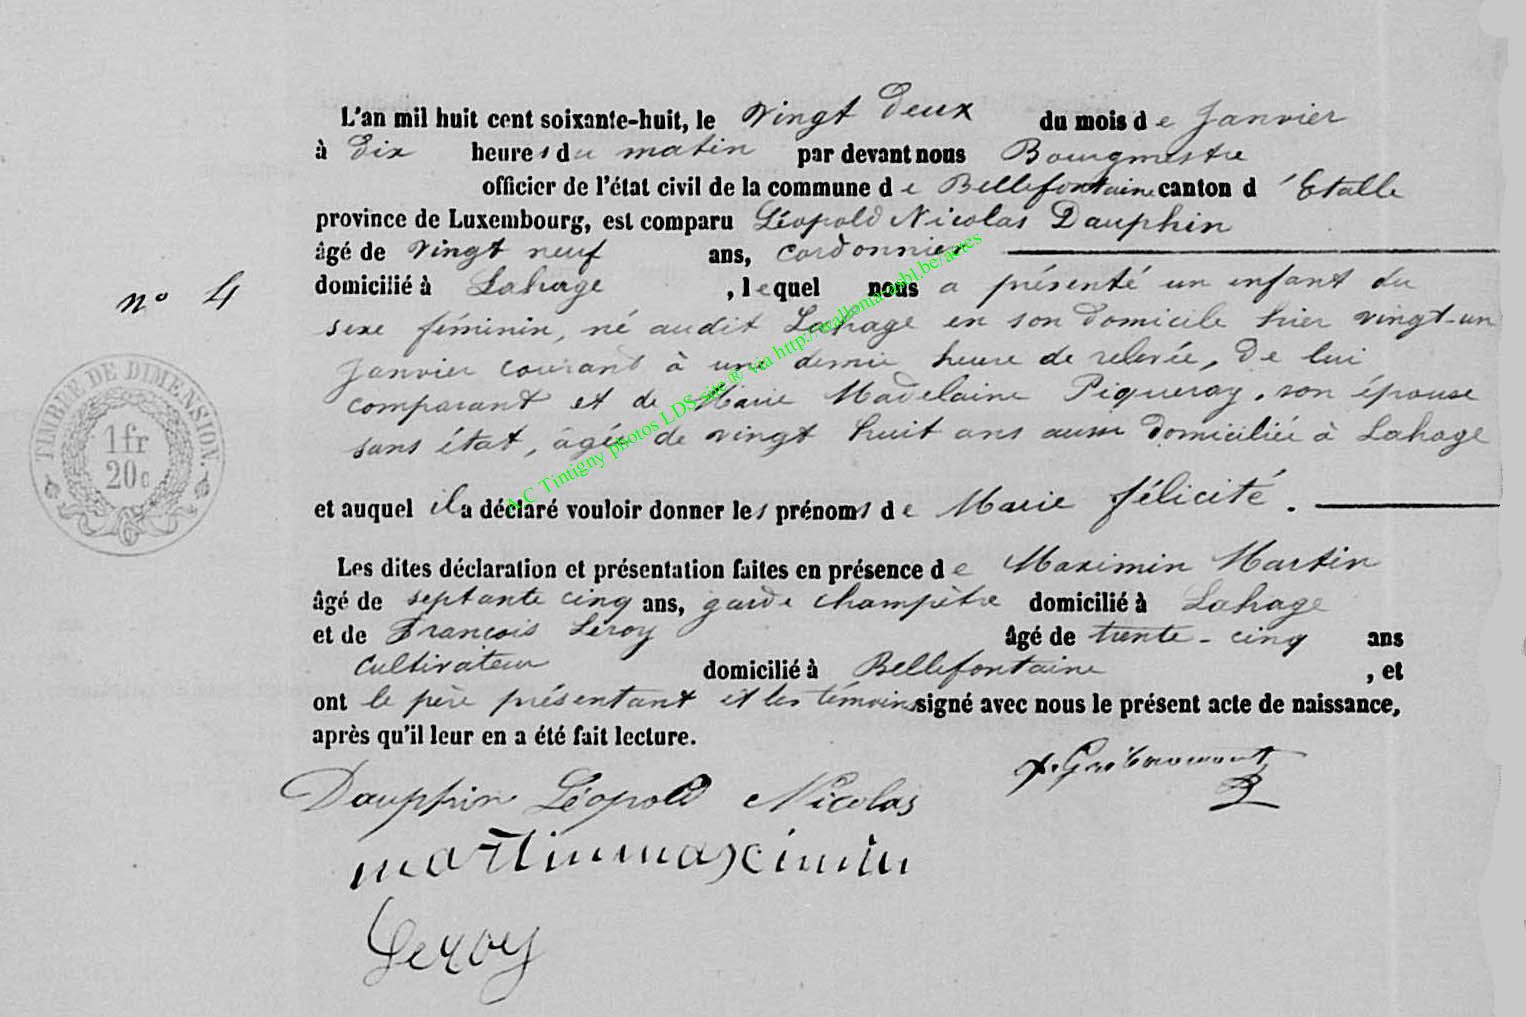 L'an mil huit cent soixante-huit, le vingt deux du mois de Janvier
à dix heures du matin par devant nous Bourgmestre
officier de l'état civil de la commune de Bellefontaine canton d'Etalle
province de Luxembourg, est comparu Léopold Nicolas Dauphin
âgé de vingt neuf ans, cordonnier
n° 4
domicilié à Lahage, lequel nous a présenté un enfant du
sexe féminin, né audit Lahage en son domicile hier vingt-un
Janvier courant à une demie heure de relevée, de lui
comparant et de Marie Madelaine Piqueray, son épouse
sans état, âgée de vingt huit ans aussi domiciliée à Lahage
et auquel il a déclaré vouloir donner les prénoms de Marie félicité.
Les dites déclaration et présentation faites en présence de Maximin Martin
âgé de septante cinq ans, garde champètre domicilié à Lahage
et de François Leroy âgé de trente-cinq ans
cultivateur domicilié à Bellefontaine, et
ont le père présentant et les témoins signé avec nous le présent acte de naissance,
après qu'il leur en a été fait lecture.
Dauphin Léopold Nicolas
martin maximin
Leroy
TIMBRE DE DIMENSION.
1 fr
20 c
A.C Tintigny photos LDS site ® via http://wallonia.asbl.be/actes